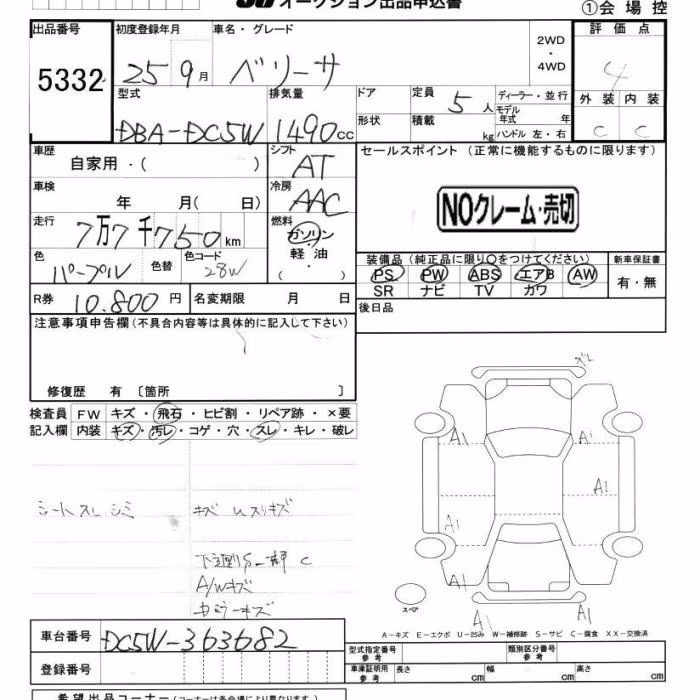 オークション出品申込書
①会場控
出品番号 初度登録年月 車名・グレード 2WD・4WD 評価点
5332 25 9月 ベリーサ 4
型式 排気量 ドア 定員 5人 ディーラー・並行 外装 内装
DBA-DC5W 1490cc 形状 積載 kg モデル年式 年 ハンドル 左・右 C C
車歴 シフト セールスポイント (正常に機能するものに限ります)
自家用・( ) AT
車検 冷房
年 月( 日) AAC
NOクレーム・売切
走行 燃料
7万7千750km ガソリン・軽油・( )
色 色替 色コード 装備品(純正品に限り○をつけてください) 新車保証書
パープル 28W PS PW ABS エアB AW 有・無
SR ナビ TV カワ
R券 10.800円 名変期限 月 日 後日品
注意事項申告欄(不具合内容等は具体的に記入して下さい)
修復歴 有 〔箇所 〕
検査員 FW キズ・飛石・ヒビ割・リペア跡・×要
記入欄 内装 キズ・汚レ・コゲ・穴・スレ・キレ・破レ
A1 A1
シートスレ シミ キズ
A1
A1
下廻りS C
A/Wキズ
A1 A1
スペア
A1 A1
A-キズ E-エクボ U-凹み W-補修跡 S-サビ C-腐食 XX-交換済
車台番号 DC5W-363682 型式指定番号 参考 類別区分番号 参考
登録番号 車庫証明用 参考 長さ cm 幅 cm 高さ cm
希望出品コーナー(コーナーは各会場により異なります)